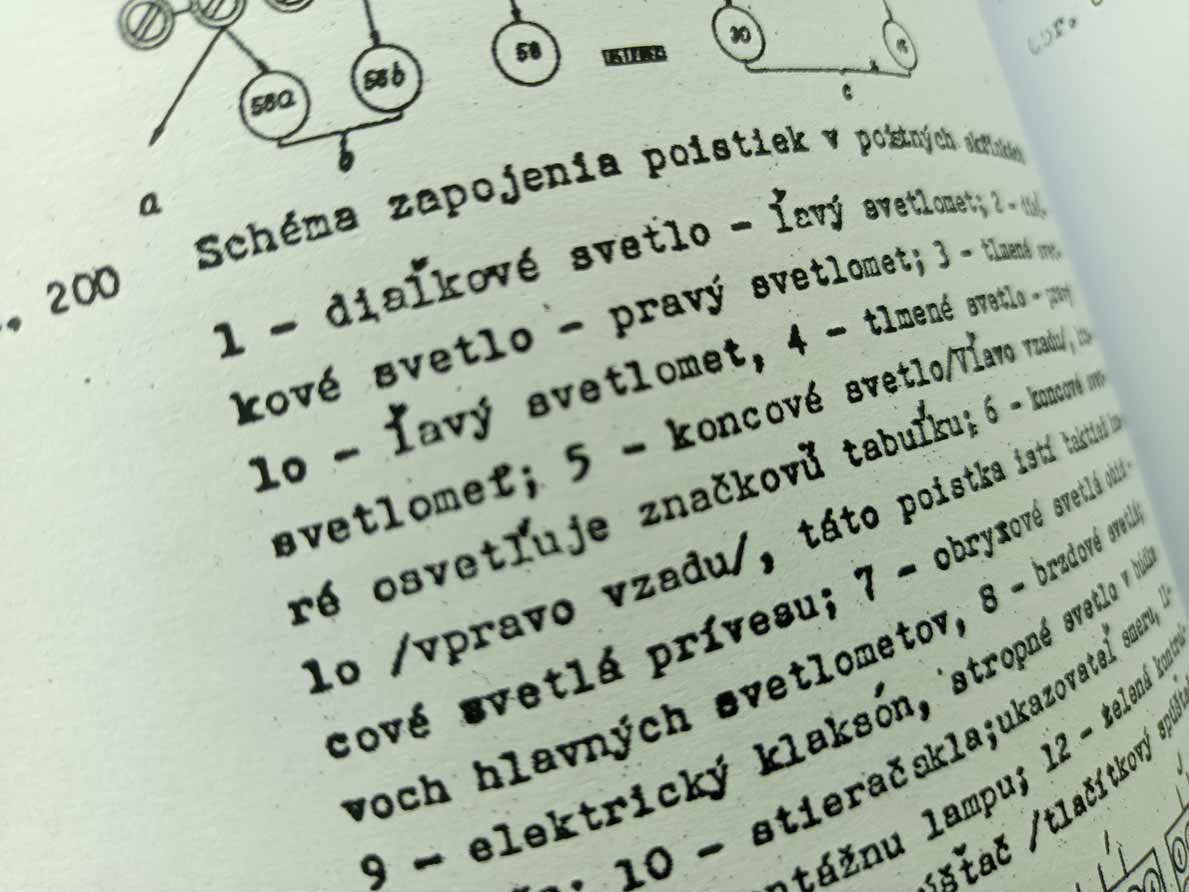 58a 58b 58 30 15
b c
a
Schéma zapojenia poistiek v poistných
200
1 - diaľkové svetlo - ľavý svetlomet; 2 - diaľ-
kové svetlo - pravý svetlomet; 3 - tlmené svet-
lo - ľavý svetlomet, 4 - tlmené svetlo - pravý
svetlomet; 5 - koncové svetlo/Vľavo vzadu/,
ré osvetľuje značkovů tabuľku; 6 - koncové svet-
lo /vpravo vzadu/, táto poistka istí taktiež kon-
cové svetlá prívesu; 7 - obrysové svetlá
voch hlavných svetlometov, 8 - brzdové svetlá;
9 - elektrický klaksón, stropné svetlo v búdke
10 - stierač skla;ukazovateľ smeru, 11-
ntážnu lampu; 12 - zelená kontrol-
/tlačítkový